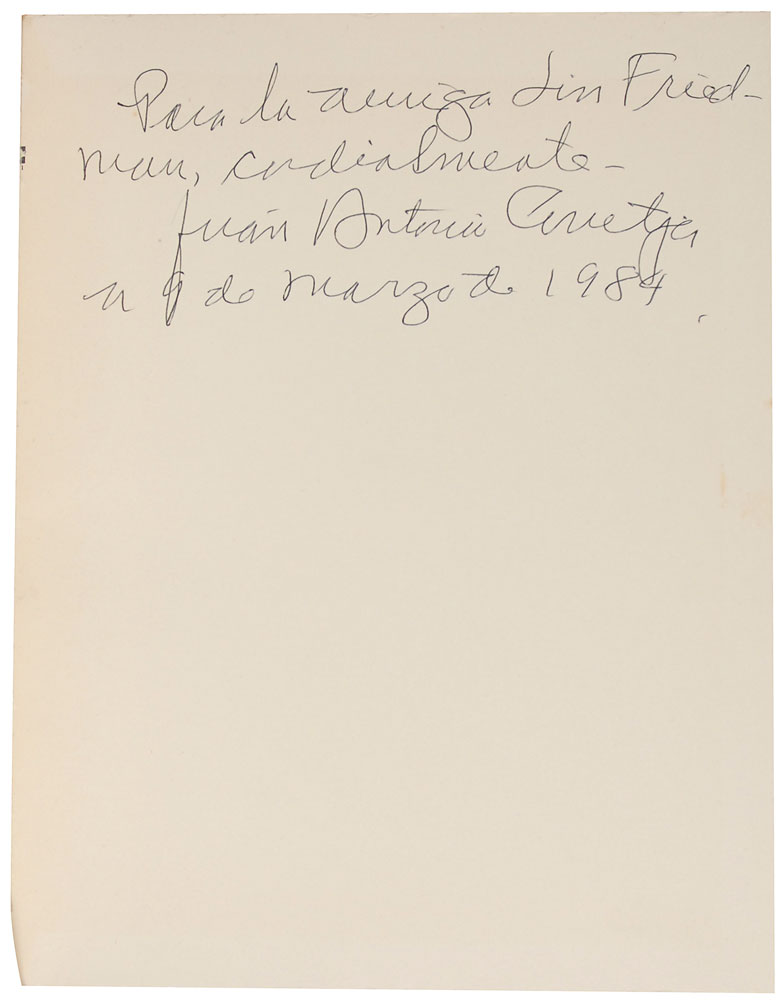 Para la amiga Lin Fried-
man, cordialmente -
Juan Antonio Corretjer
a 9 de marzo de 1984.